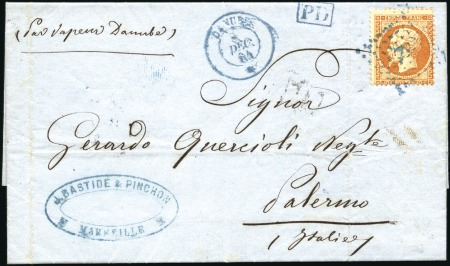 (Par vapeur Danube)
DANUBE
DEC.
64
PD
Signor
Gerardo Quercioli Negte
Palermo
(Italie)
BASTIDE & PINCHON
MARSEILLE